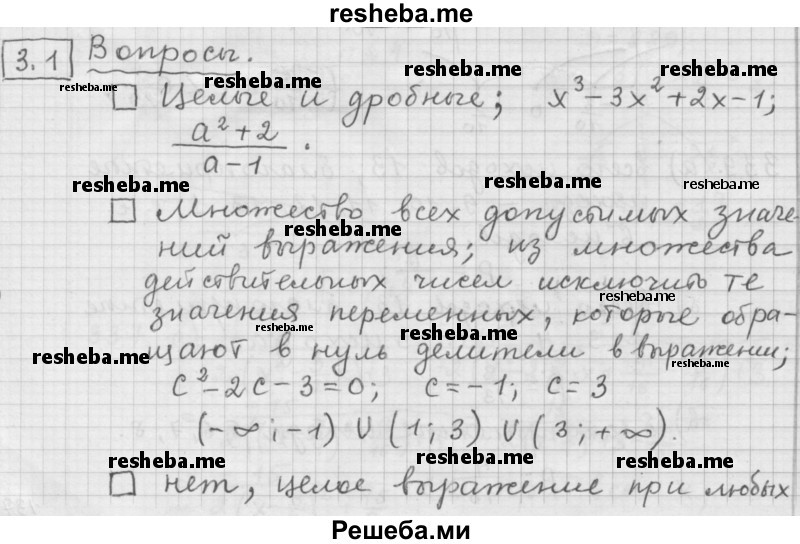 resheba.me
3.1 Вопросы.
resheba.me
resheba.me
resheba.me
□ Целые и дробные; x³-3x²+2x-1;
(a²+2)/(a-1).
resheba.me
resheba.me
resheba.me
□ Множество всех допустимых значе-
resheba.me
ний выражения; из множества
действительных чисел исключить те
resheba.me
значения переменных, которые обра-
resheba.me
resheba.me
resheba.me
щают в нуль делители в выражении;
resheba.me
c²-2c-3=0; c=-1; c=3
(-∞;-1) ∪ (1;3) ∪ (3;+∞).
resheba.me
resheba.me
resheba.me
□ нет, целое выражение при любых
Решеба.ми